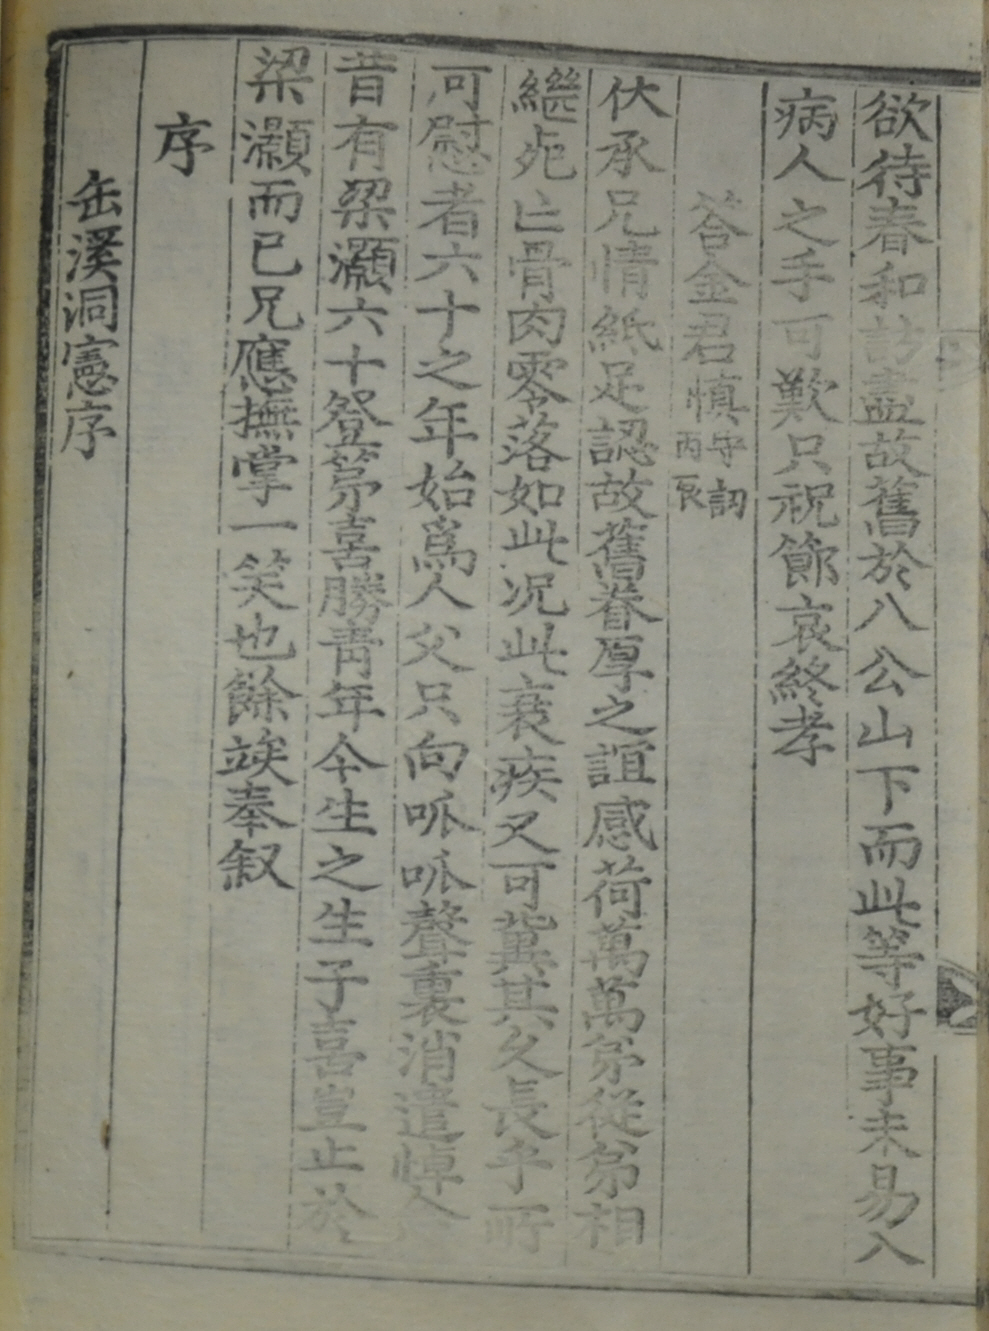 欲待春和訪盡故舊於八公山下而此等好事未易入
病人之手可歎只祝節哀終孝
答金君愼守訒丙辰
伏承兄情紙足認故舊眷厚之誼感荷萬萬弟從弟相
繼死亡骨肉零落如此况此衰疾又可冀其久長乎所
可慰者六十之年始爲人父只向呱呱聲裏消遣悼
昔有梁灝六十登第喜勝靑年今生之生子喜豈止於
梁灝而已兄應撫掌一笑也餘竢奉叙
序
缶溪洞憲序